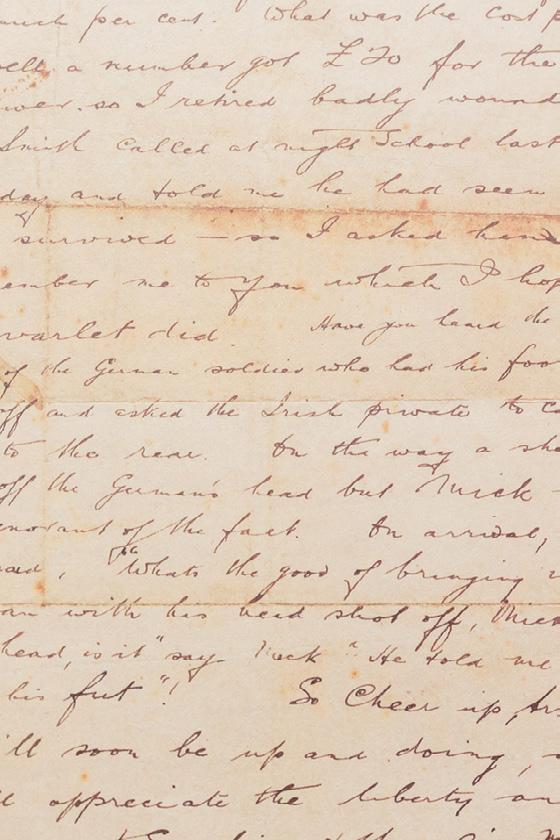 much per cent. What was the cost p
well a number got £20 for the
wer. so I retired badly wound
Smith called at night School last
day and told me he had seen
survived — so I asked him
ember me to you which I hop
varlet did. Have you heard the
of the German soldier who had his foo
off and asked the Irish private to ca
to the rear. On the way a she
off the German's head but Mick
ignorant of the fact. On arrival,
said, "Whats the good of bringing
an with his head shot off, Mick
head, is it" say Mick "He told me
his fut"!
So Cheer up,
'll soon be up and doing,
appreciate the liberty an